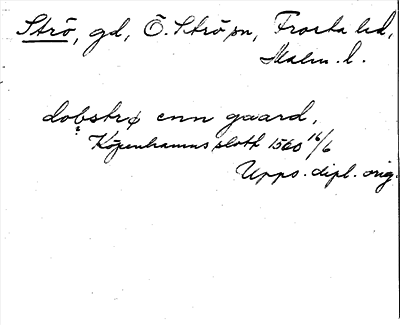 Strö, gd, Ö. Strö sn, Frosta hd,
Malm. l.
dobstrø enn gaard,
Köpenhamns slott 1560 16/6
Upps. dipl. orig.